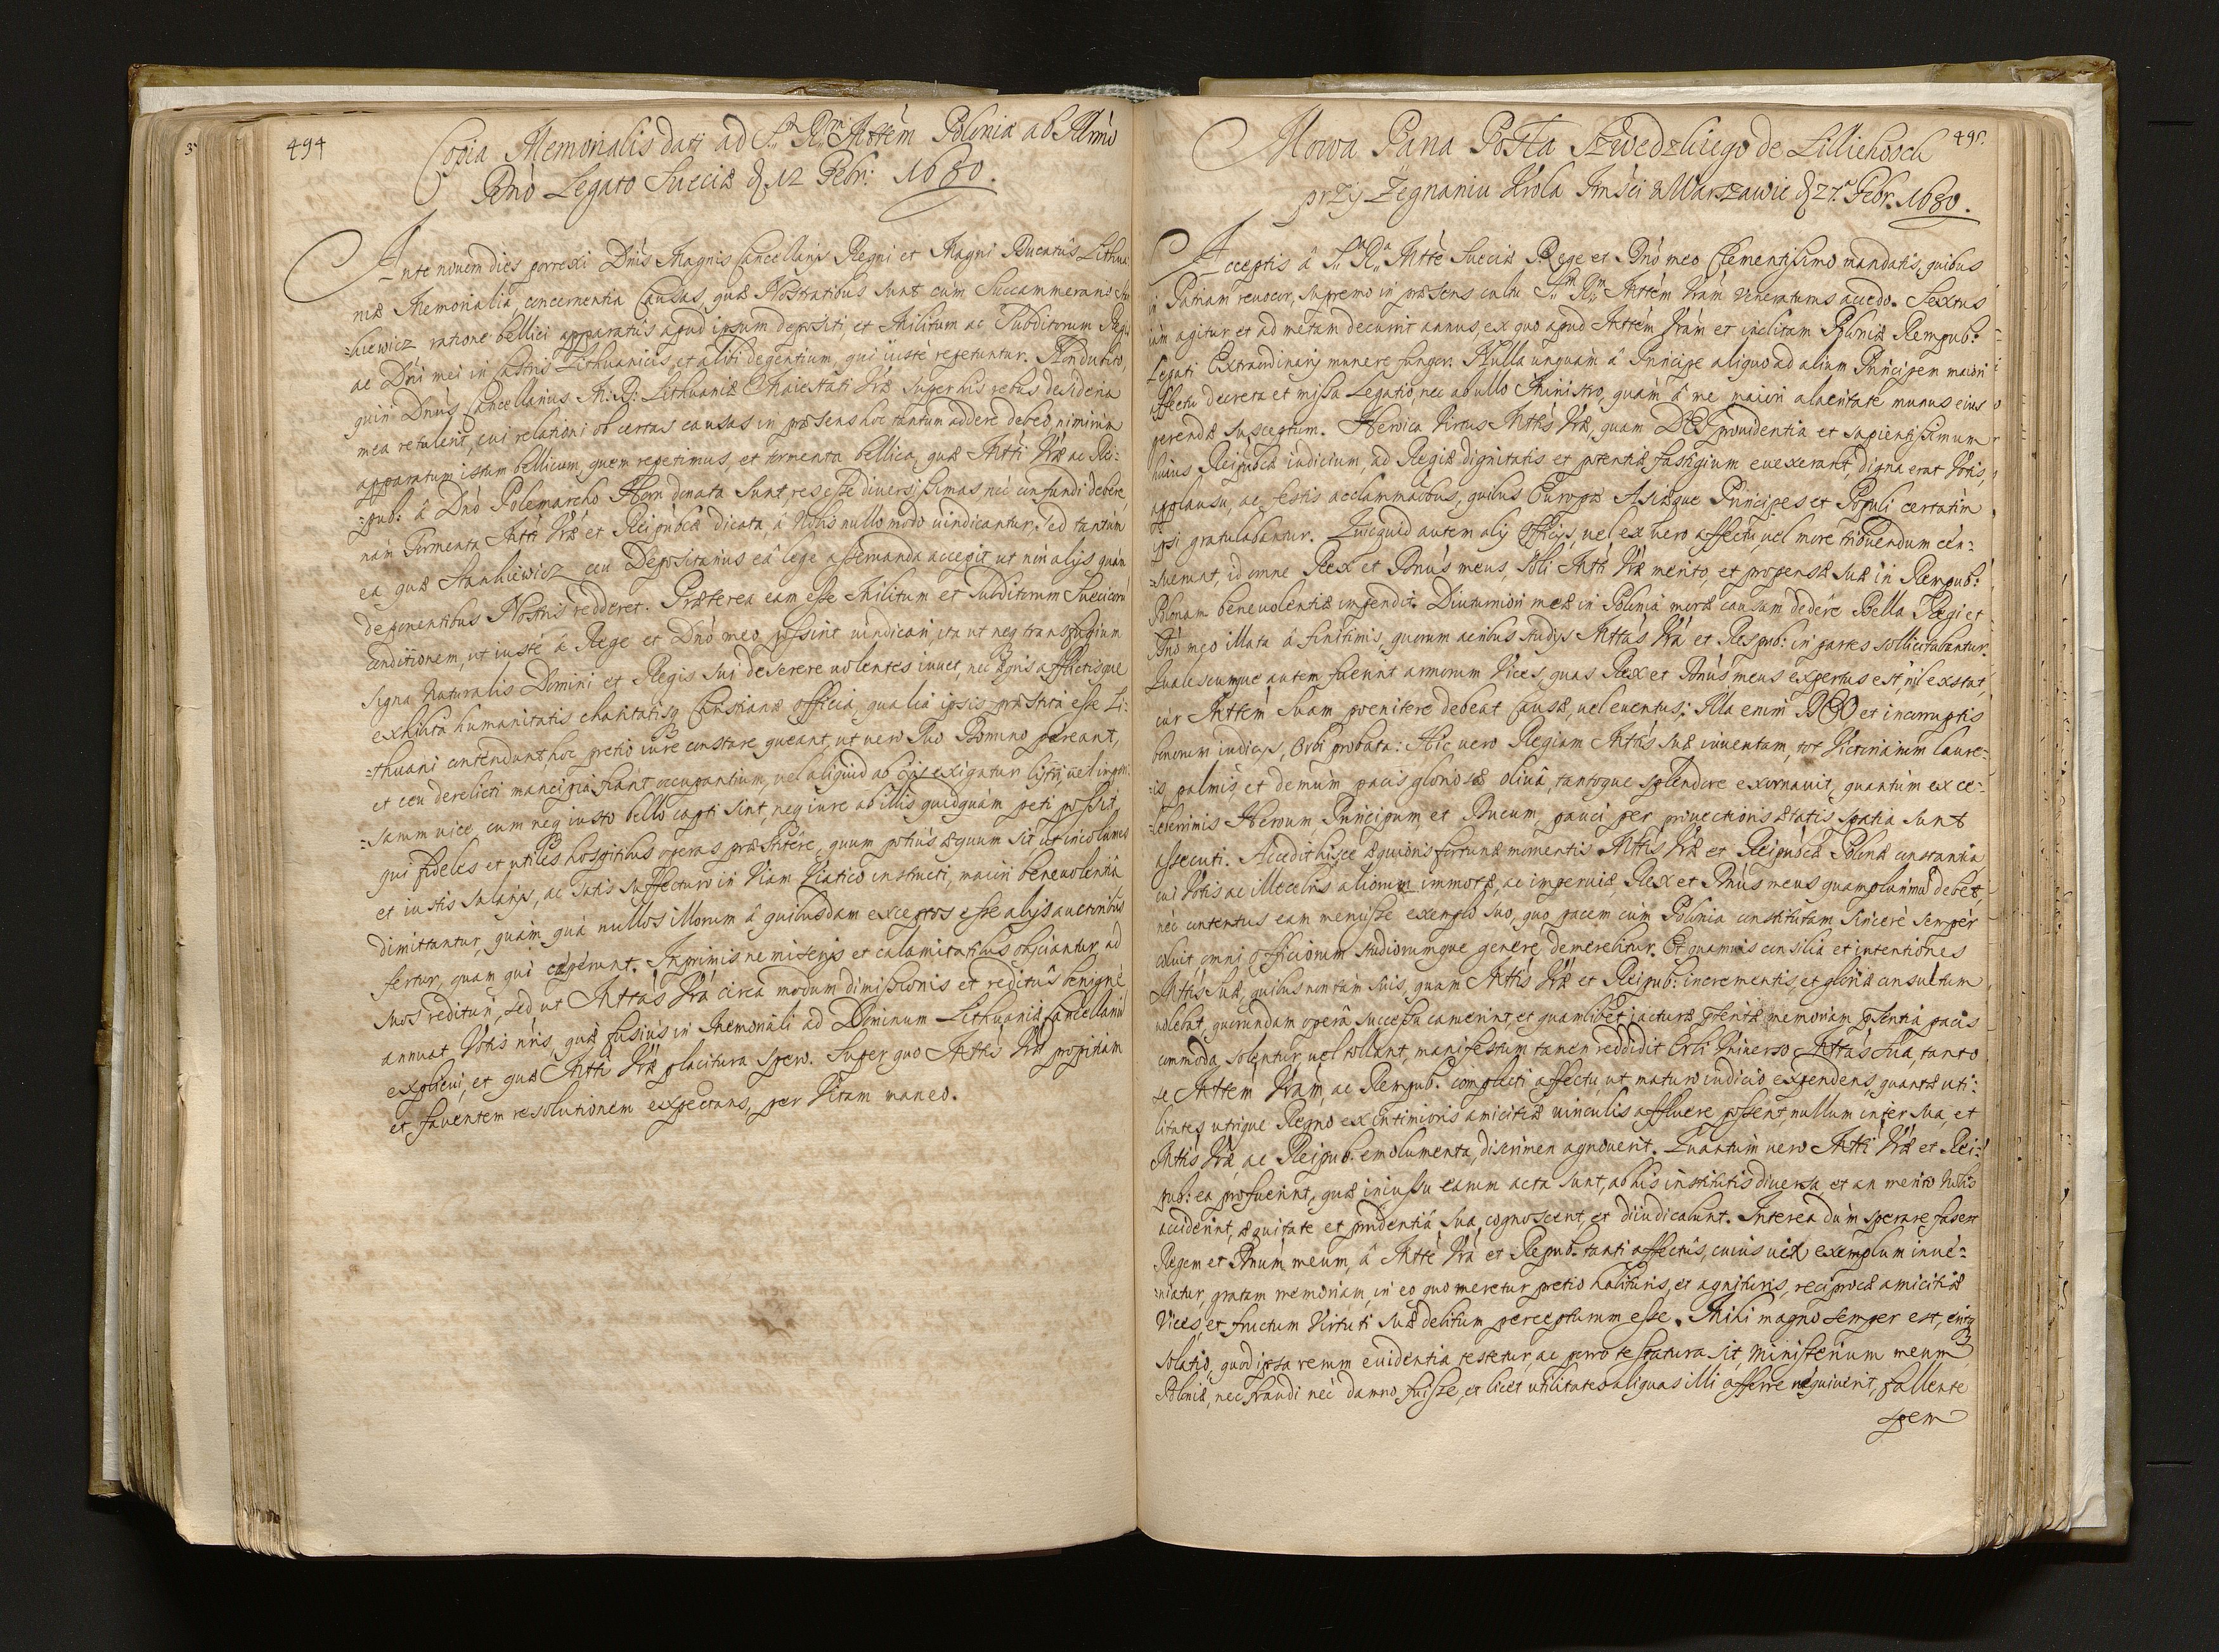 494
Copia Memorialis dati ad S. R. Mttem Poloniæ ab Illmo
Dno Legato Sueciæ d 12 Febr: 1680.
Ante novem dies porrexi Dnis Magnis Cancellarijs Regni et Magni Ducatus Lithua
niæ Memorialia, concernentia Causas, quæ Nostratibus sunt cum Succammerario
=kiewicz ratione bellici apparatûs apud ipsum depositi, et Militum ac Subditorum Regis
ac Dni mei in castris Lithuanicis, et alibi degentium, qui iuste repetuntur. Non dubito,
quin Dnus Cancellarius M. D. Lithuaniæ Maiestati Vræ super his rebus desideria
mea retulerit, cui relationi ob certas causas in præsens hoc tantum addere debeo, nimirum
apparatum istum bellicum, quem repetimus, et tormenta bellica, quæ Mtti Vræ ac Rei=
=pub: â Dno Polemarcho Horn donata sunt, res esse diversissimas, nec confundi debere,
nam Tormenta Mtti Vræ et Reipubcæ dicata, â Nobis nullo modo vindicantur, sed tantum
ea quæ Stankiewicz ceu Depositarius eâ lege asservanda accepit ut non alijs quam
deponentibus Nostris redderet. Præterea eam esse Militum et Subditorum Suecicorum
conditionem, ut iuste â Rege et Dno meo possint vindicari, ita ut neq transfugium
signa Naturalis Domini et Regis sui deserere volentes iuvet, nec ægris afflictisque
exhibita humanitatis charitatisq Christianæ officia, qualia ipsis præstita esse Li=
=thuani contendunt, hoc pretio iure constare queant, ut vero suo Domino pereant,
et ceu derelicti mancipia fiant occupantium, vel aliquid ab eis exigatur lytri, vel impen
=sarum vice, cum neq iusto bello capti sint, neq iure ab illis quidquam peti possit,
qui fideles et utiles hospitibus operas præstitêre, quum potius æquum sit ut incolumes
et iustis salarijs, ac satis suffecturo in Viam Viatico instructi, maiori benevolentia
dimittantur, quam quâ nullos illorum â quibusdam exceptos esse alijs auctoribus
fertur, quam qui cæperant. Inprimis ne miserijs et calamitatibus obijciantur ad
suos redituri, sed ut Mttas Vra circa modum dimissionis et reditûs benigne
annuat Votis nris, quæ fusius in Memoriali ad Dominum Lithuaniæ Cancellarium
explicui, et quæ Mtti Vræ placitura spero. Super quo Mttis Vræ propitiam
et faventem resolutionem expectans, per Vitam maneo.
495.
Mowa Pana Posła Szwedzkiego de Lilliehooch
przy Żegnaniu Krola Jmści w Warszawie d 27. Febr. 1680.
Acceptis â S. R. Mtte Sueciæ Rege et Dno meo Clementissimo mandatis, quibus
in Patriam revocor, supremo in præsens cultu S. R. Mttem Vram veneraturus accedo. Sextus
iam agitur et ad metam decurrit annus, ex quo apud Mttem Vram et inclitam Poloniæ Rempub:
Legati Extraordinarij munere fungor. Nulla unquam â Principe aliquo ad alium Principem maiori
affectu decreta et missa Legatio, nec ab ullo Ministro, quam â me maiori alacritate munus eius
gerendæ susceptum. Heroica Virtus Mttis Vræ, quam DEI providentia et sapientissimum
huius Reipubcæ iudicium, ad Regiæ dignitatis et potentiæ fastigium evexerant, digna erat Votis,
applausu, ac festis acclamationibus, quibus Europæ Asiæque Principes et Populi certatim
ipsi gratulabantur. Quicquid autem alij officijs, vel ex vero affectu, vel more tribuendum cen=
=suerunt, id omne Rex et Dnus meus, soli Mttis Vræ merito, et propensæ suæ in Rempub:
Polonam benevolentiæ impendit. Diuturniori meæ in Polonia moræ causam dedêre Bella Regi et
Dno meo illata â finitimis, quorum acribus studijs Mttas Vra et Respub: in partes sollicitabantur.
Qualescumque autem fuerint armorum Vices, quas Rex et Dnus meus expertus est, nil exstat,
cur Mttem suam poenitere debeat Causæ, vel eventus; Illa enim DEO et incorruptis
bonorum iudicijs, Orbi probata: Hic vero Regiam Mttis suæ iuventam, tot Victoriarum laure=
is, palmis et demum pacis gloriosæ olivâ, tantoque splendore exornavit, quantum ex ce=
leberrimis Heroum, Principum, et Ducum, pauci per provectioris ætatis spatia sunt
assecuti. Accedit hisce æquioris fortunæ momentis Mttis Vræ et Reipubcæ Polonæ constantia
cui Votis ac illecebris aliorum immotæ, ac imperviæ, Rex et Dnus meus quamplurimum debet,
nec contentus eam meruisse exemplo suo, quo pacem cum Polonia constitutam sincere semper
coluit, omni officiorum studiorumque genere demerebitur. Et quamvis consilia et intentiones
Mttis suæ, quibus non tam suis, quam Mttis Vræ et Reipub: incrementis, et gloriæ consultum
volebat, quorundam operâ successu caruerint, et quamlibet iacturæ potentæ memoriam psentia pacis
commoda solentur, vel tollant, manifestum tamen reddidit Orbi Universo Mttas Sua, tanto
se Mttem Vram, ac Rempub. complecti affectu, ut maturo iudicio expendens, quantæ uti=
litates utrique Regno ex intimioris amicitiæ vinculis affluere possent, nullum inter sua, et
Mttis Vræ ac Reipub. emolumenta, discrimen agnoverit. Quantum vero Mtti Vræ et Rei=
pub: ea profuerint, quæ iniussu earum acta sunt, ab his institutis diversa, et an merito Nobis
acciderint, æquitate et prudentiâ sua cognoscent, et diiudicabunt. Interea dum sperare fas est
Regem et Dnum meum, â Mtte Vra et Repub. tanti affectûs, cuius vix exemplum inve=
=niatur, gratam memoriam, in eo quo meretur pretio habituris, et agnituris, reciprocæ amicitiæ
Vices, et fructum Virtuti suæ debitum percepturum esse. Mihi magno semper est, eritq
solatio, quod ipsa rerum evidentia testetur, ac porro testatura sit, Ministerium meum
Poloniæ, nec fraudi nec damno, fuisse, et licet utilitates aliquas illi afferre nequiverit, fallente
spem